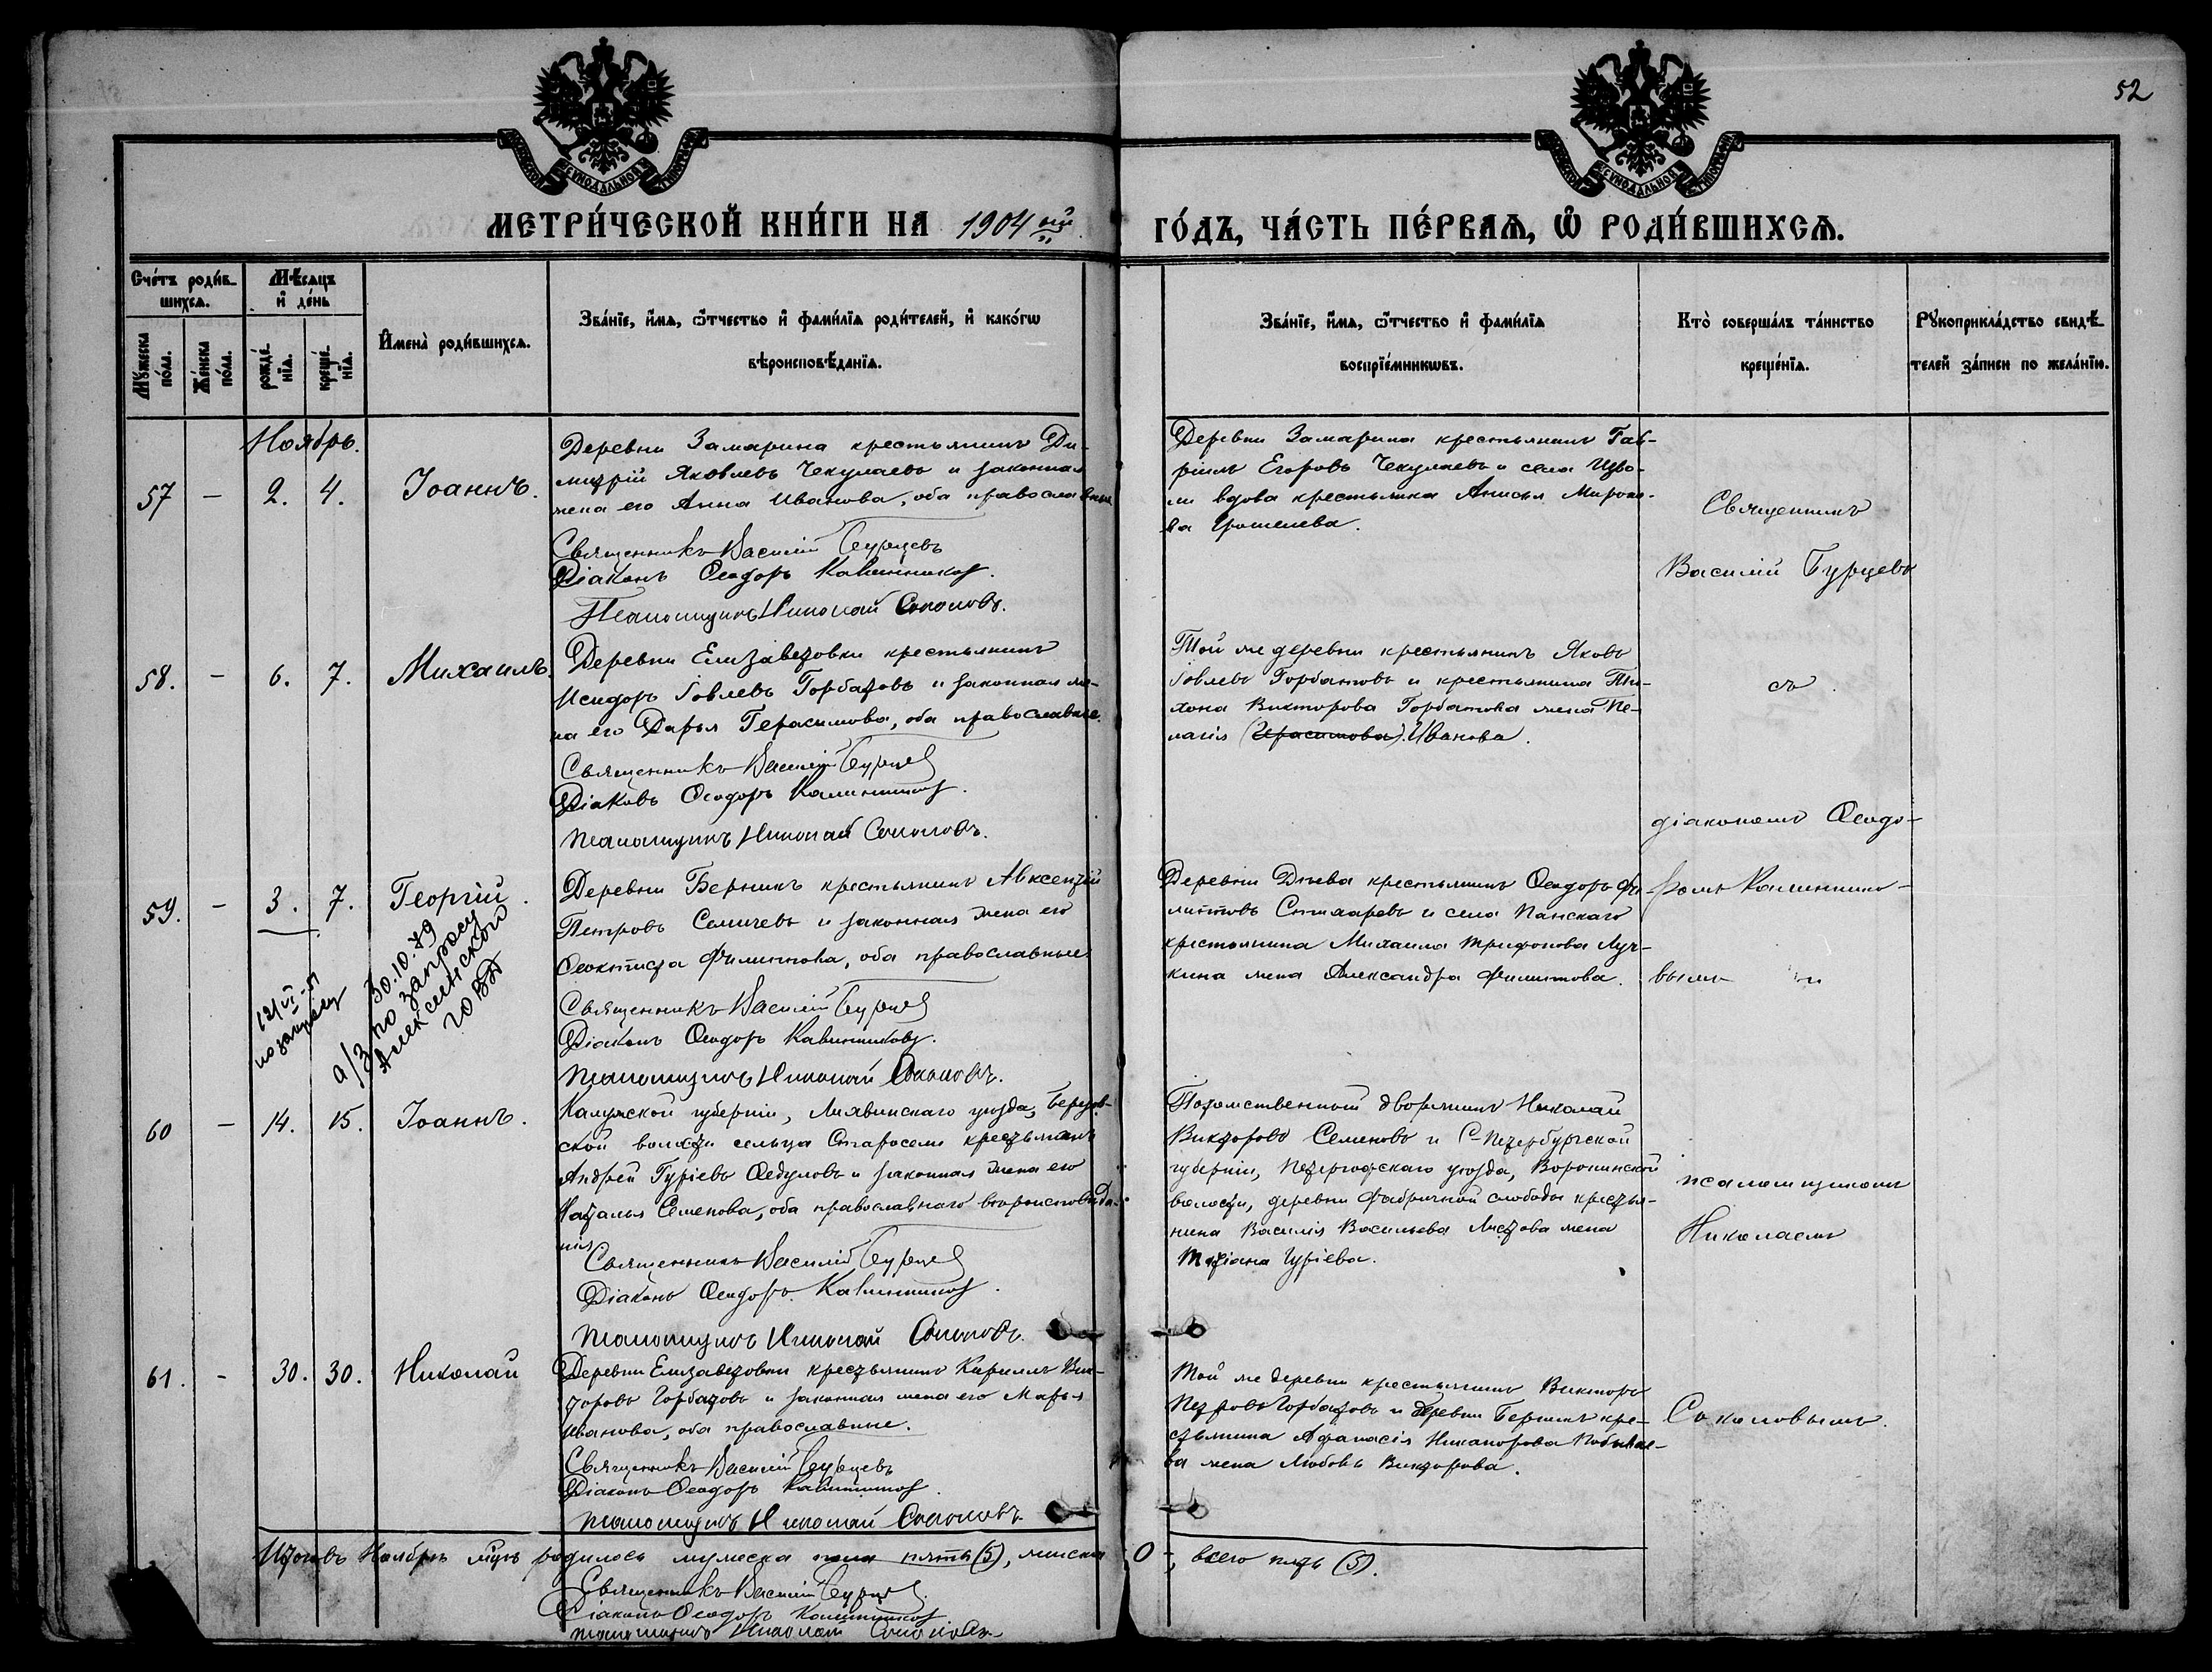 52
МЕТРИ́ЧЕСКОЙ КНИ́ГИ НА 1904 ый ГО́ДЪ, ЧА́СТЬ ПЕ́РВАЯ, Ѿ РОДИ́ВШИХСЯ.
Сче́тъ роди́в-
шихся.
Мѣсяцъ
и де́нь
Мꙋжеска
по́ла.
Же́нска
по́ла.
рожде́-
нїя.
креще́-
нїя.
И́мена роди́вшихся.
Зва́нїе, и́мя, ѻ҆́тчество и фами́лїя роди́телей, и како́гѡ
вѣроисповѣ́данїя.
Зва́нїе, и́мя, ѻ҆́тчество и фами́лїя
воспрїе́мникѡвъ.
Кто̀ соверша́лъ та́инство
креще́нїя.
Рꙋкоприкла́дство свидѣ́-
телей за́писи по жела́нїю.
Ноябрь.
57 – 2. 4. Іоаннъ.
Деревни Замарина крестьянинъ Ди-
митрій Яковлевъ Чекулаевъ и законная
жена его Анна Иванова, оба православные
Священникъ Василій Бурцевъ
Діаконъ Ѳеодоръ Калинниковъ.
Псаломщикъ Николай Соколовъ.
Деревни Замарина крестьянинъ Гав-
ріилъ Егоровъ Чекулаевъ и села Изво-
ли вдова крестьянка Анисья Мироно-
ва Грошелева.
Священникъ
Василій Бурцевъ
58. – 6. 7. Михаилъ.
Деревни Елизаветовки крестьянинъ
Исидоръ Іовлевъ Горбатовъ и законная же-
на его Дарья Герасимова, оба православные.
Священникъ Василій Бурцевъ
Діаконъ Ѳеодоръ Калинниковъ.
Псаломщикъ Николай Соколовъ.
Той же деревни крестьянинъ Яковъ
Іовлевъ Горбатовъ и крестьянина Ти-
хона Викторова Горбатова жена Пе-
лагія (Герасимова). Иванова.
съ
діакономъ Ѳеодо-
59. – 3. 7. Георгій.
12/VI-51
по запросу
а/з 30.10.79
по запросу
Алексинского
ГОВД
Деревни Берникъ крестьянинъ Авксентій
Петровъ Семичевъ и законная жена его
Ѳеоктиста Филиппова, оба православные
Священникъ Василій Бурцевъ
Діаконъ Ѳеодоръ Калинниковъ.
Псаломщикъ Николай Соколовъ.
Деревни Дгева крестьянинъ Ѳеодоръ Фи-
липповъ Стихаревъ и села Панскаго
крестьянина Михаила Трифонова Луч-
кина жена Александра Филиппова.
ромъ Калиннико-
вымъ и
60 – 14. 15. Іоаннъ.
Калужской губерніи, Лихвинскаго уѣзда, Березов-
ской волости сельца Старосели крестьянинъ
Андрей Гуріевъ Ѳедуловъ и законная жена его
Наталья Семенова, оба православнаго вѣроисповѣда-
нія
Священникъ Василій Бурцевъ
Діаконъ Ѳеодоръ Калинниковъ.
Псаломщикъ Николай Соколовъ.
Потомственный дворянинъ Николай
Викторовъ Семеновъ и С-Петербургской
губерніи, Петергофскаго уѣзда, Воронинской
волости, деревни Фабричной слободы крестья-
нина Василія Васильева Листова жена
Татіана Гуріева.
псаломщикомъ
Николаемъ
61. – 30. 30. Николай
Деревни Елизаветовки крестьянинъ Кириллъ Вик-
торовъ Горбатовъ и законная жена его Марья
Иванова, оба православные.
Священникъ Василій Бурцевъ
Діаконъ Ѳеодоръ Калинниковъ.
Псаломщикъ Николай Соколовъ
Той же деревни крестьянинъ Викторъ
Петровъ Горбатовъ и деревни Берникъ кре-
стьянина Аѳанасія Никанорова
жена Любовь Викторова.
Соколовымъ.
Итого въ Ноябрѣ мцѣ родилось мужеска пола пять (5), женска – 0 –, всего пять (5).
Священникъ Василій Бурцевъ.
Діаконъ Ѳеодоръ Калинниковъ
Псаломщикъ Николай Соколовъ